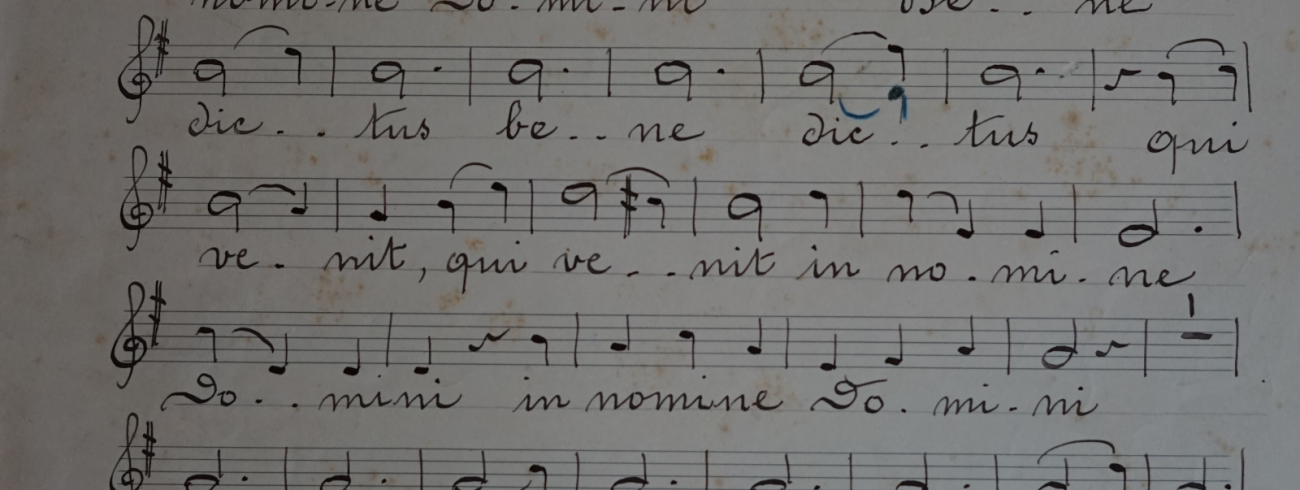 nomi-ne Do. mi-ni be.. ne
dic.. tus be.. ne dic.. tus qui
ve. nit, qui ve.. nit in no. mi. ne
Do.. mini in nomine Do. mi-ni